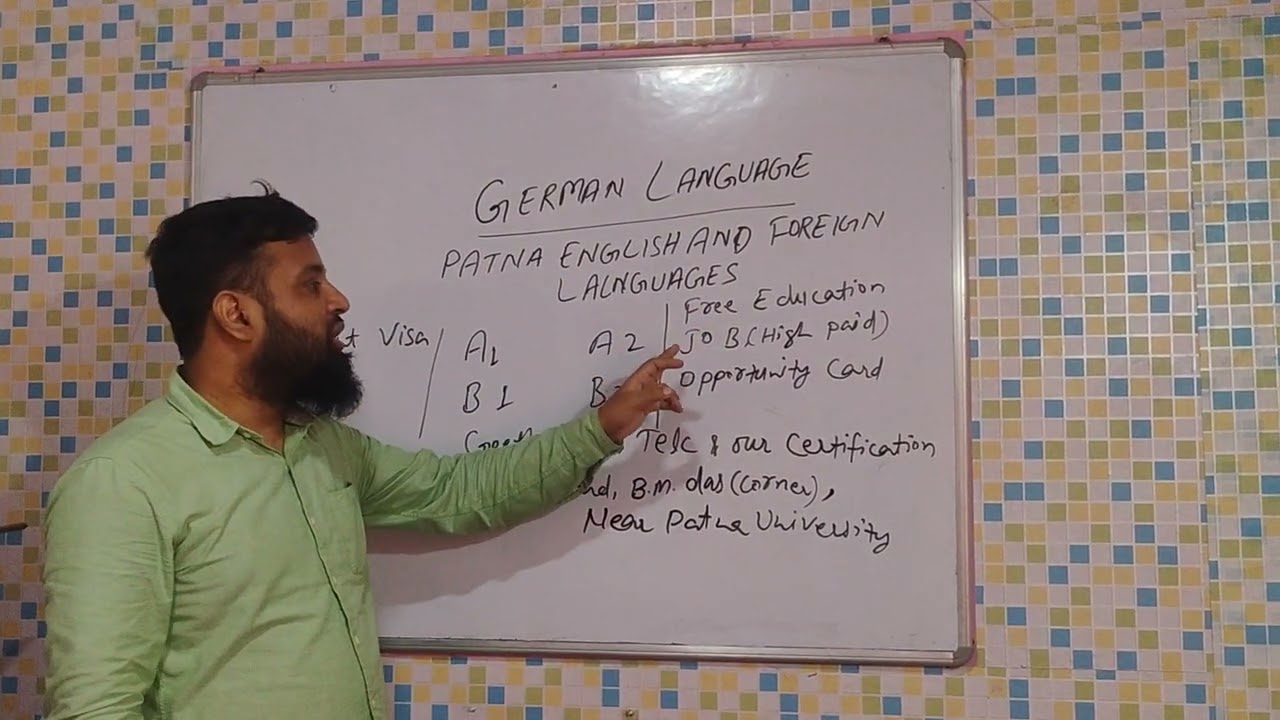 GERMAN LANGUAGE
PATNA ENGLISH AND FOREIGN
LALNGUAGES
Visa / A1 A2 | Free Education
JOB (High paid)
B1 Opportunity Card
Telc & our Certification
B.M. das (Corner),
Near Patna University